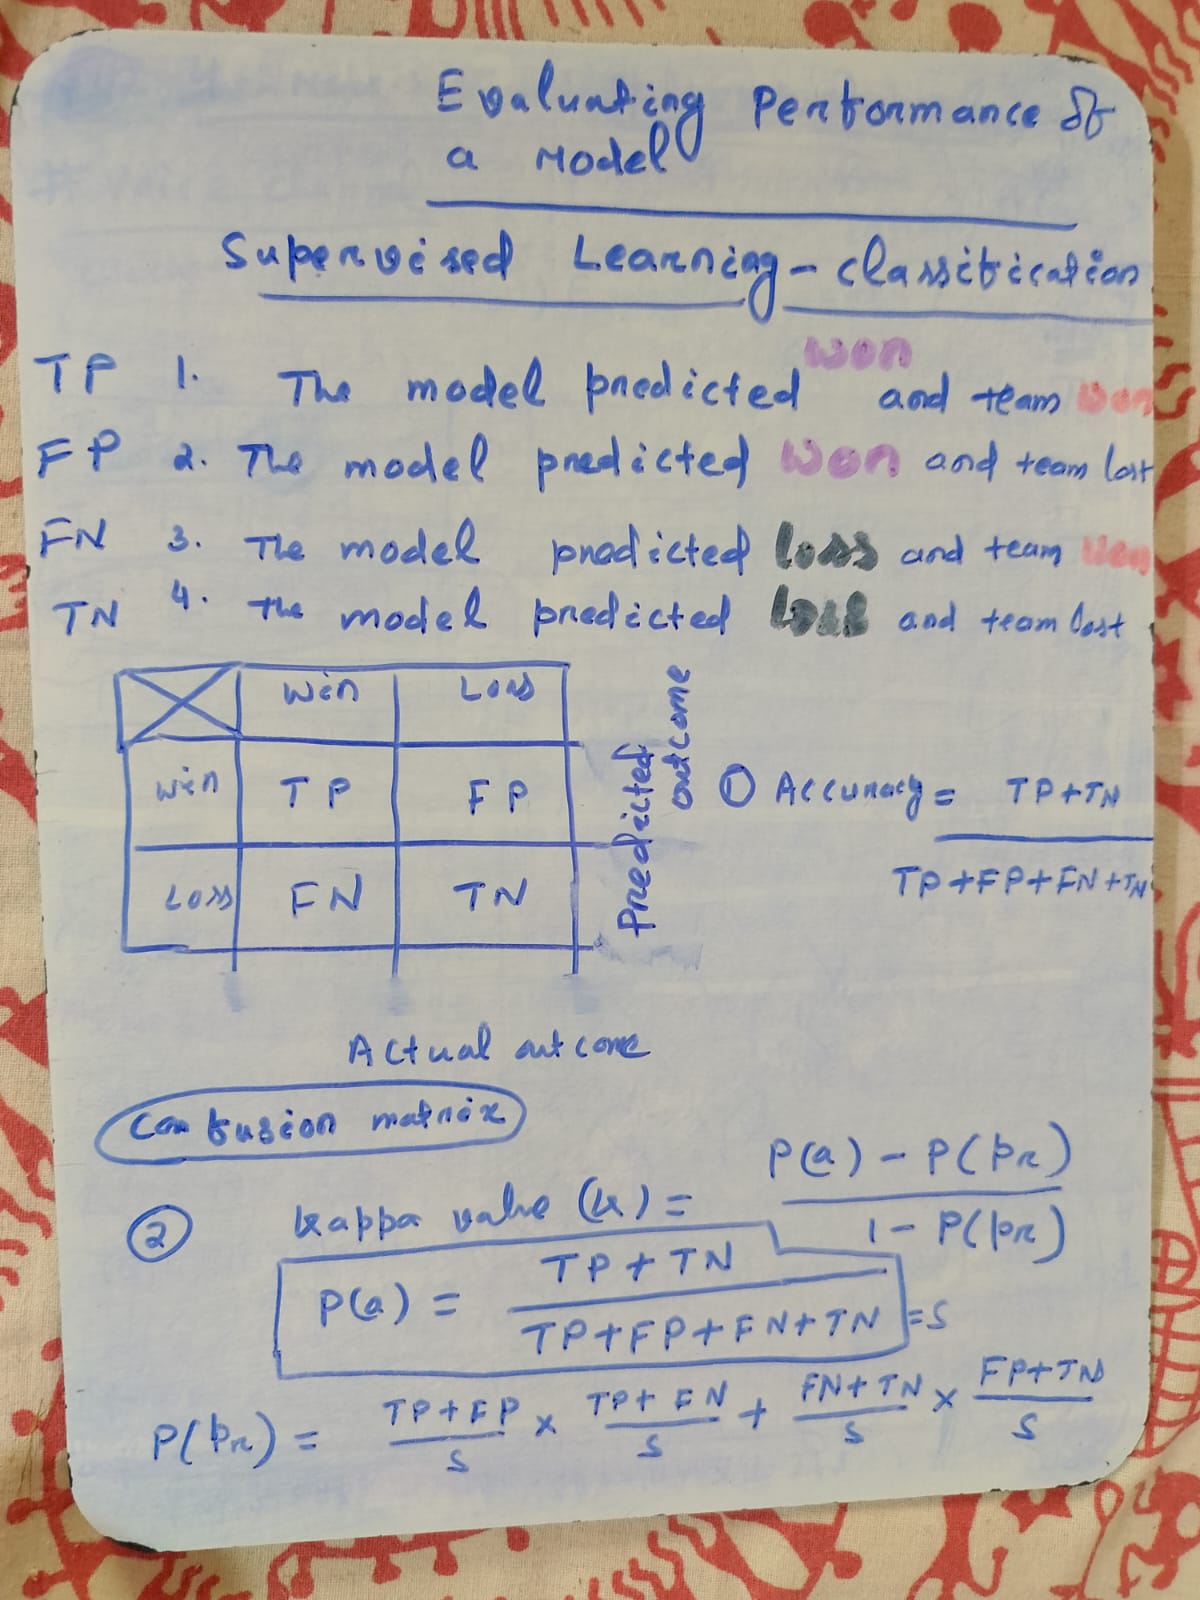 Evaluating Performance of
a Model
Supervised Learning - classification
TP 1. The model predicted won and team won
FP 2. The model predicted won and team lost
FN 3. The model predicted loss and team won
TN 4. The model predicted loss and team lost
Win Loss
Win TP FP
Loss FN TN
Predicted
outcome
① Accuracy = TP+TN
TP+FP+FN+TN
Actual outcome
Confusion matrix
② Kappa value (k) = P(a) - P(pr)
1 - P(pr)
P(a) = TP + TN
TP+FP+FN+TN =S
P(pr) = TP+FP × TP+FN + FN+TN × FP+TN
S S S S